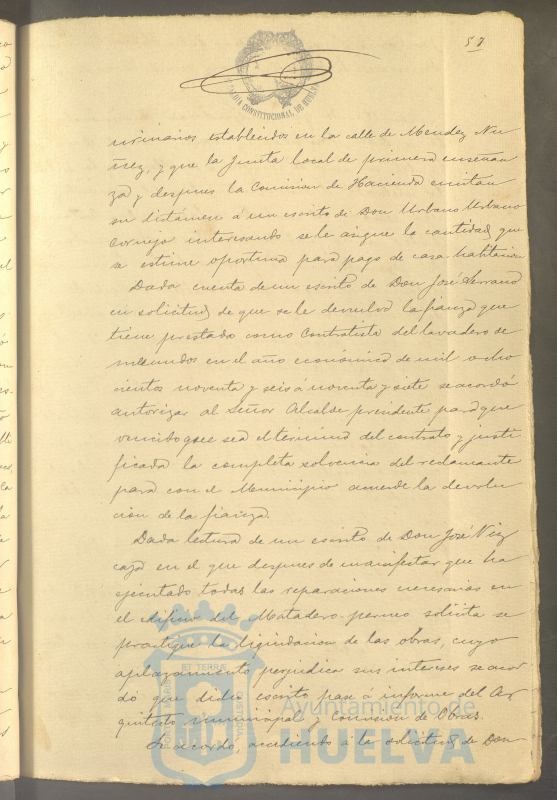 57
ALCALDIA CONSTITUCIONAL DE HUELVA
urinarios establecidos en la calle de Mendez Nu
ñez, y que la Junta local de primera enseñan
za y despues la Comision de Hacienda emitan
su dictámen á un escrito de Don Urbano Urbano
Cornejo interesando se le asigne la cantidad que
se estime oportuna para pago de casa habitacion
Dada cuenta de un escrito de Don José Serrano
en solicitud de que se le devuelva la fianza que
tiene prestada como Contratista del lavadero de
menudos en el año económico de mil ocho
cientos noventa y seis á noventa y siete se acordó
autorizar al Señor Alcalde presidente para que
vencido que sea el término del contrato y justi
ficada la completa solvencia del reclamante
para con el Municipio acuerde la devolu
cion de la fianza.
Dada lectura de un escrito de Don José Viz
caya en el que despues de manifestar que ha
ejecutado todas las reparaciones necesarias en
el edificio del Matadero solicita se
practique la liquidacion de las obras, cuyo
aplazamiento perjudica sus intereses se acor
dó que dicho escrito pase á informe del Ar
quitecto municipal y Comision de Obras.
Se acordó, accediendo á la solicitud de Don
Ayuntamiento de
HUELVA